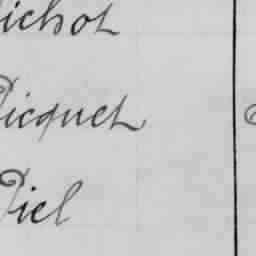 Pichot
Picquet
Piel